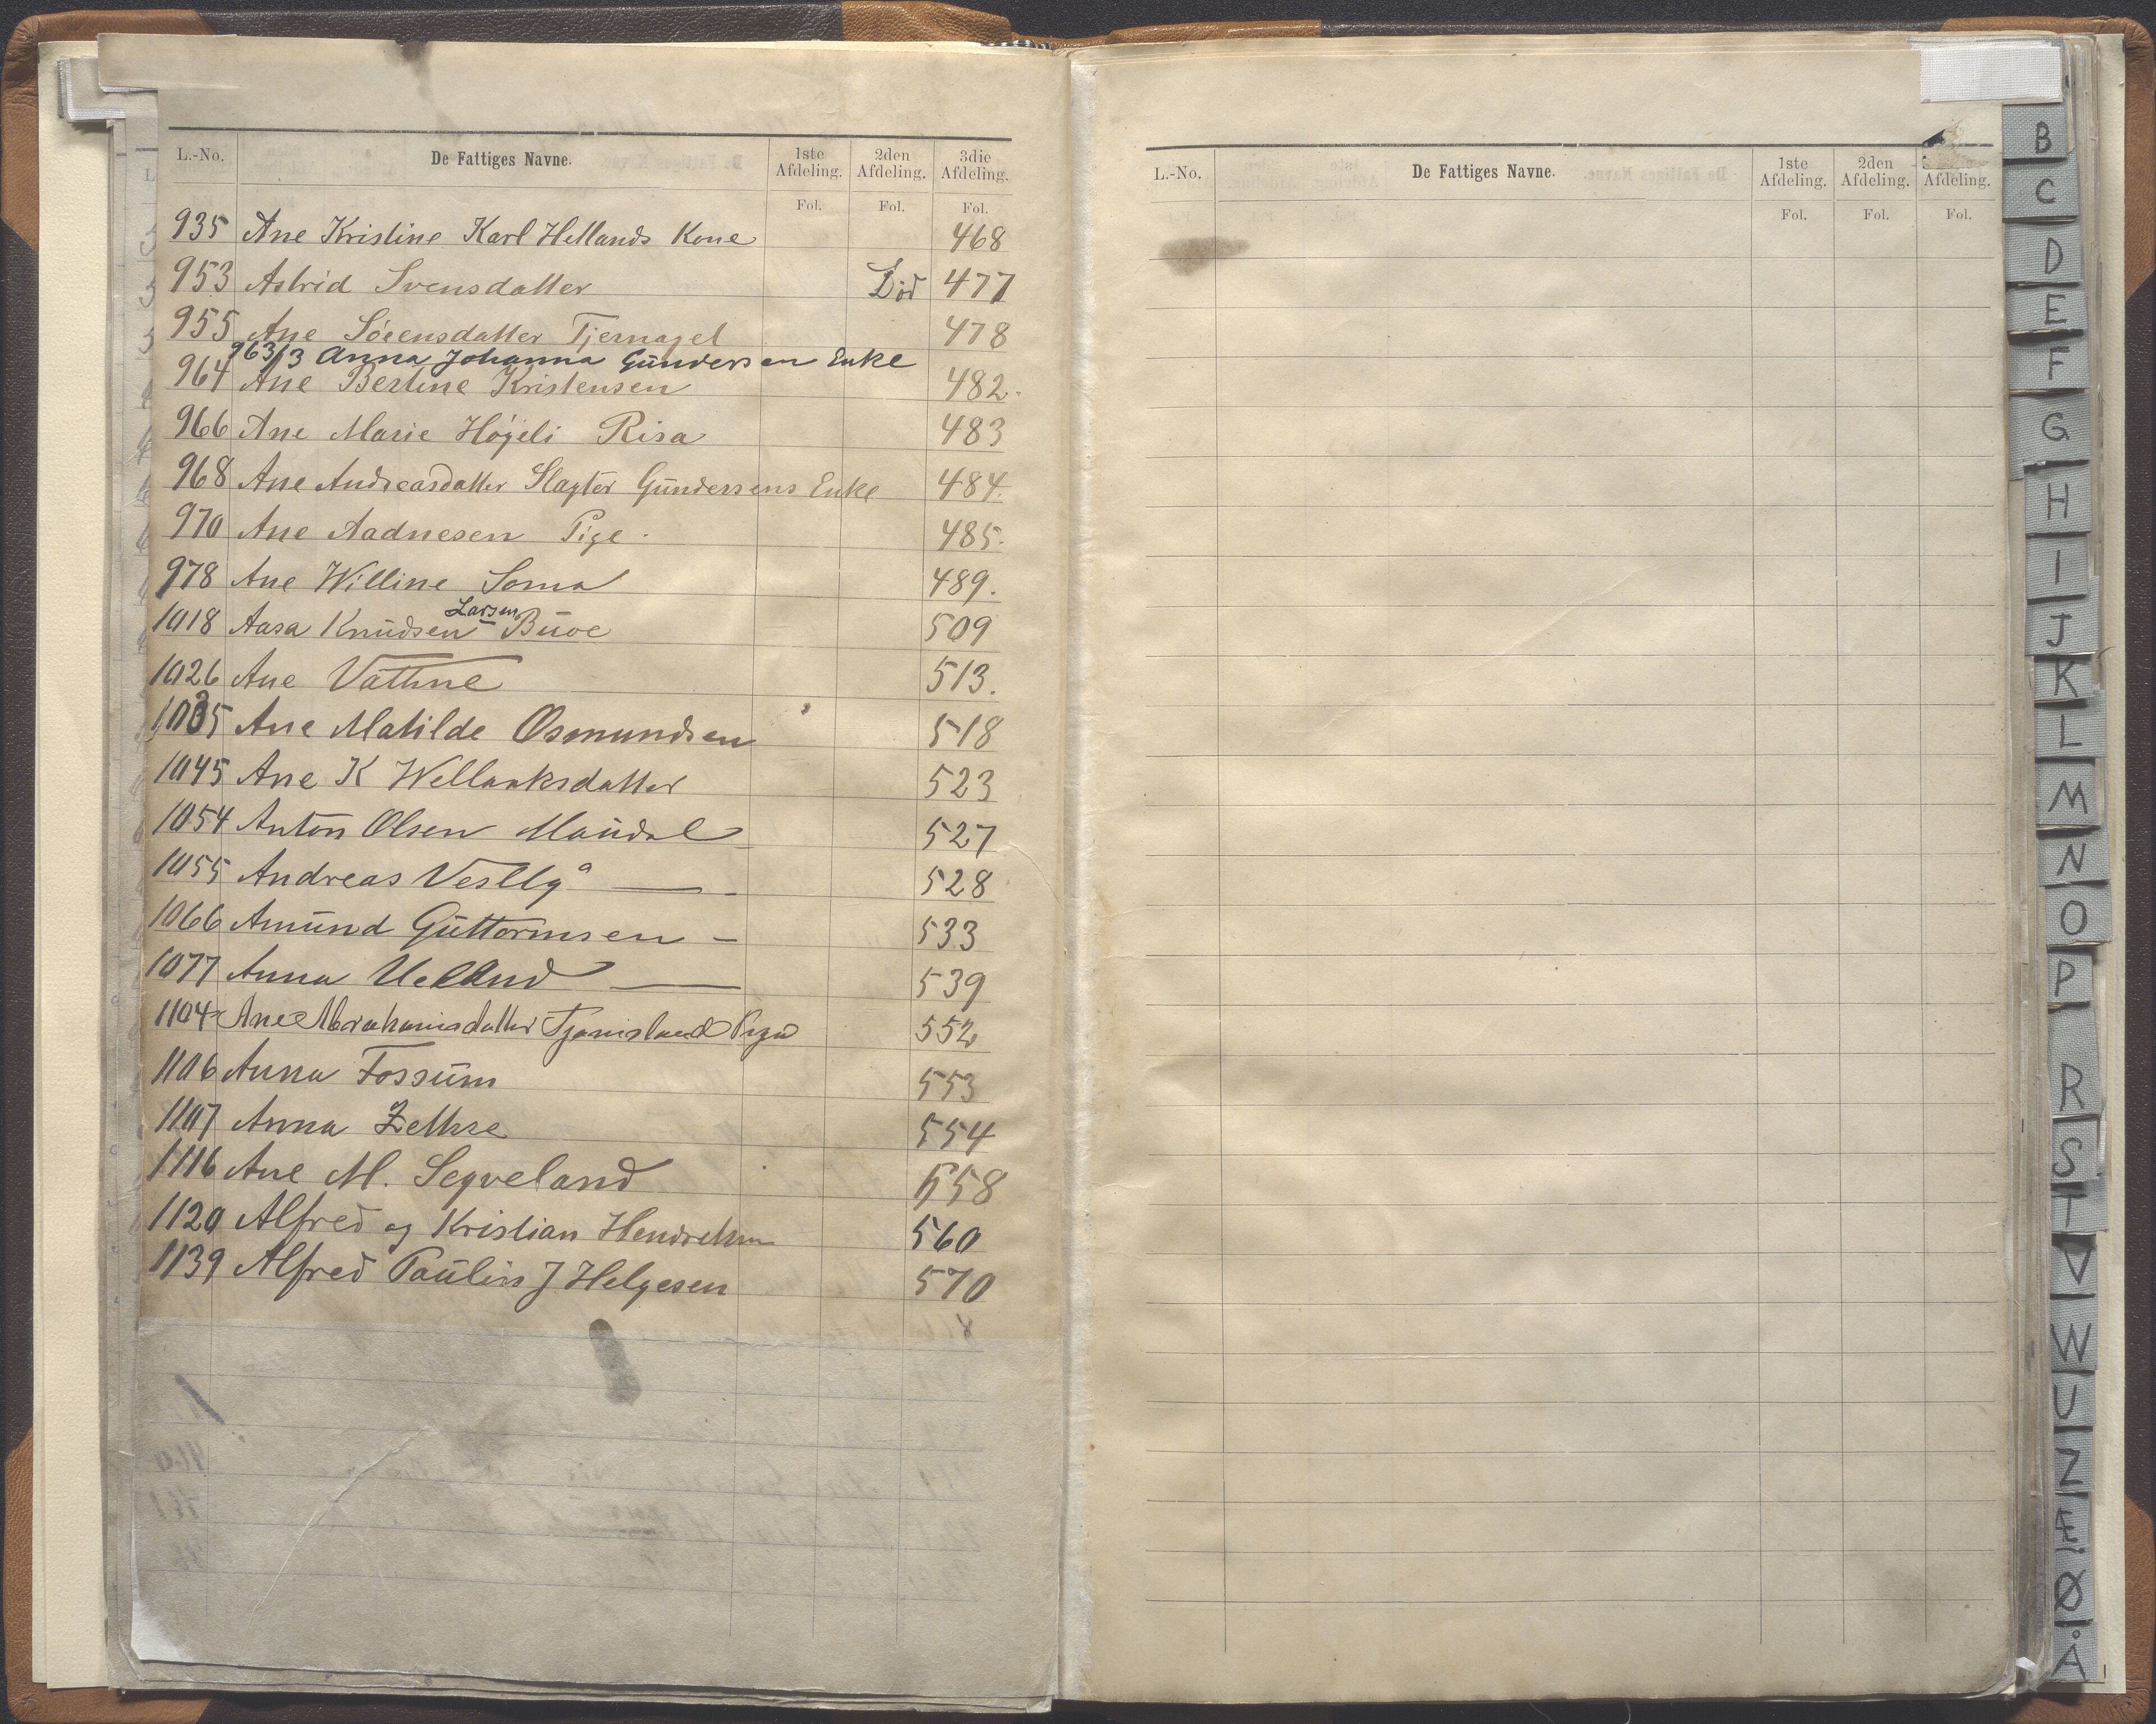 L.-No. De Fattiges Navne. 1ste Afdeling. 2den Afdeling. 3die Afdeling.
Fol. Fol. Fol.
935 Ane Kristine Karl Hellands Kone 468
953 Astrid Svensdatter Död 477
955 Ane Sörensdatter Tjernagel 478
963/3 Anna Johanna Gundersen Enke
964 Ane Bertine Kristensen 482.
966 Ane Marie Høgeli Risa 483
968 Ane Andreasdatter Slagter Gundersens Enke 484.
970 Ane Aadnesen Pige. 485.
978 Ane Willine Soma 489.
Larsen
1018 Aasa Knudsen Buoe 509
1026 Ane Vathne 513.
1035 Ane Matilde Osmundsen 518
1045 Ane K Wellaaksdatter 523
1054 Anton Olsen Maudal 527
1055 Andreas 528
1066 Amund Guttormsen – 533
1077 Anna Ueland 539
1104 Ane Abrahamsdatter Pige 552
1106 Anna Fossum 553
1107 Anna 554
1116 Ane M. Segveland 558
1120 Alfred og Kristian 560
1139 Alfred Paulius J Helgesen 570
L.-No. De Fattiges Navne. 1ste Afdeling. 2den Afdeling. Afdeling.
Fol. Fol. Fol.
B
C
D
E
F
G
H
I
J
K
L
M
N
O
P
R
S
T
V
W
U
Z
Æ
Ø
Å